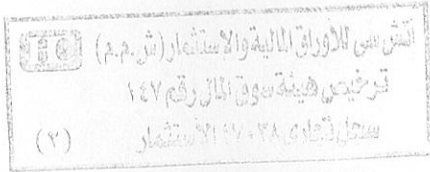 اتش سى للأوراق المالية والاستثمار (ش.م.م) HC
ترخيص هيئة سوق المال رقم ١٤٧
سجل تجارى الاستثمار
(٢)